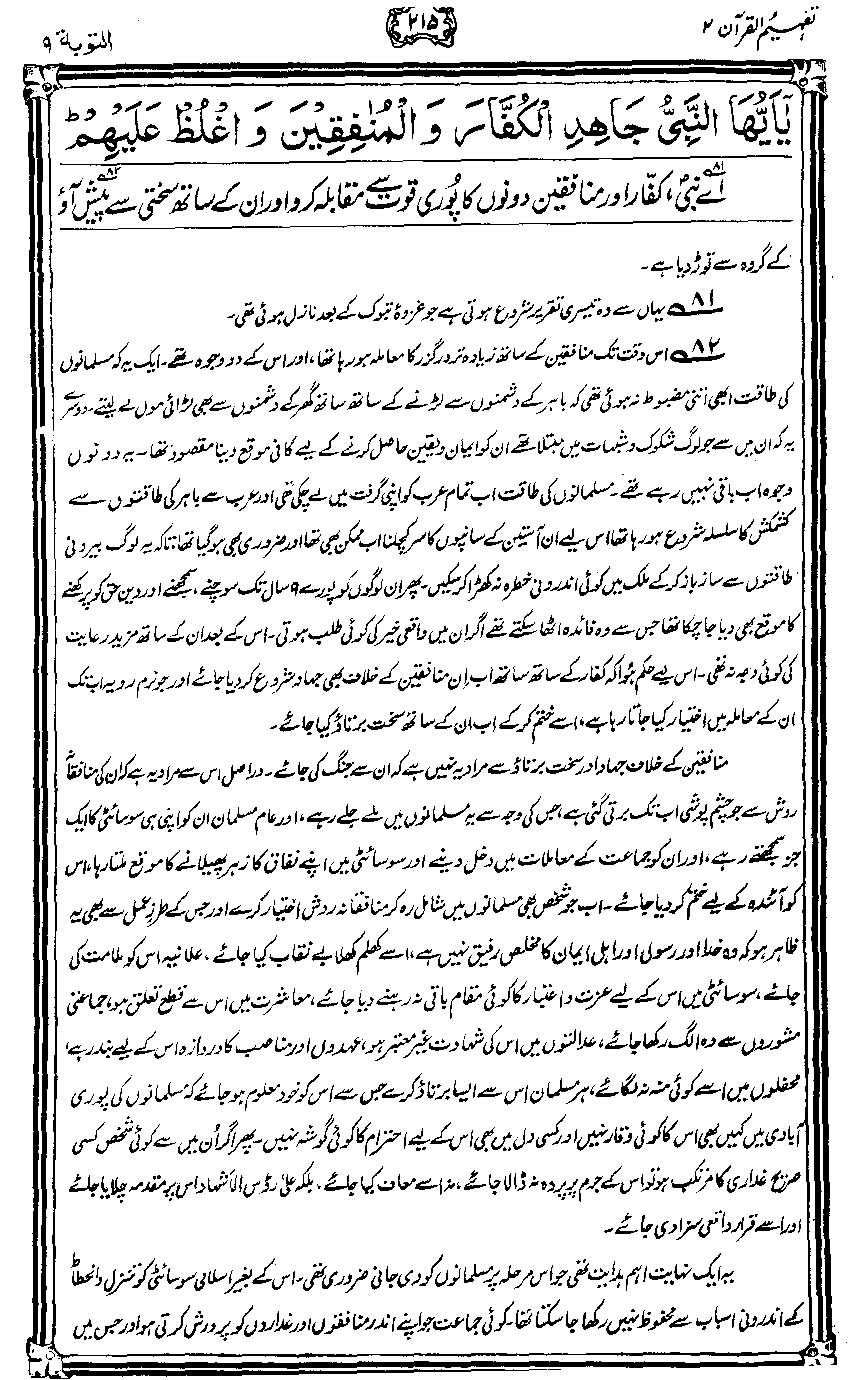 تفہیم القرآن ۲
۲۱۵
التوبة ۹
يٰۤاَيُّهَا النَّبِيُّ جَاهِدِ الْكُفَّارَ وَ الْمُنٰفِقِيْنَ وَ اغْلُظْ عَلَيْهِمْ ؕ
۸۱ اے نبیؐ، کفّار اور منافقین دونوں کا پُوری قوت سے مقابلہ کرو اور ان کے ساتھ سختی سے پیش آؤ ۸۲
کے گروہ سے توڑ دیا ہے۔
۸۱ یہاں سے وہ تیسری تقریر شروع ہوتی ہے جو غزوۂ تبوک کے بعد نازل ہوئی تھی۔
۸۲ اس وقت تک منافقین کے ساتھ زیادہ تر درگزر کا معاملہ ہو رہا تھا، اور اس کے دو وجوہ تھے۔ ایک یہ کہ مسلمانوں
کی طاقت ابھی اتنی مضبوط نہ ہوئی تھی کہ باہر کے دشمنوں سے لڑنے کے ساتھ ساتھ گھر کے دشمنوں سے بھی لڑائی مول لے لیتے۔ دوسرے
یہ کہ ان میں سے جو لوگ شکوک و شبہات میں مبتلا تھے ان کو ایمان و یقین حاصل کرنے کے لیے کافی موقع دینا مقصود تھا۔ یہ دونوں
وجوہ اب باقی نہیں رہے تھے۔ مسلمانوں کی طاقت اب تمام عرب کو اپنی گرفت میں لے چکی تھی اور عرب سے باہر کی طاقتوں سے
کشمکش کا سلسلہ شروع ہو رہا تھا اس لیے ان آستین کے سانپوں کا سر کچلنا اب ممکن بھی تھا اور ضروری بھی ہوگیا تھا، تاکہ یہ لوگ بیرونی
طاقتوں سے ساز باز کر کے ملک میں کوئی اندرونی خطرہ نہ کھڑا کر سکیں۔ پھر ان لوگوں کو پورے ۹ سال تک سوچنے، سمجھنے اور دین حق کو پرکھنے
کا موقع بھی دیا جا چکا تھا جس سے وہ فائدہ اٹھا سکتے تھے اگر ان میں واقعی خیر کی کوئی طلب ہوتی۔ اس کے بعد ان کے ساتھ مزید رعایت
کی کوئی وجہ نہ تھی۔ اس لیے حکم ہُوا کہ کفار کے ساتھ ساتھ اب اِن منافقین کے خلاف بھی جہاد شروع کر دیا جائے اور جو نرم رویہ اب تک
ان کے معاملہ میں اختیار کیا جاتا رہا ہے، اسے ختم کر کے اب ان کے ساتھ سخت برتاؤ کیا جائے۔
منافقین کے خلاف جہاد اور سخت برتاؤ سے مراد یہ نہیں ہے کہ ان سے جنگ کی جائے۔ دراصل اس سے مراد یہ ہے کہ ان کی منافقانہ
روش سے جو چشم پوشی اب تک برتی گئی ہے، جس کی وجہ سے یہ مسلمانوں میں ملے جلے رہے، اور عام مسلمان ان کو اپنی ہی سوسائٹی کا ایک
جز سمجھتے رہے، اور ان کو جماعت کے معاملات میں دخل دینے اور سوسائٹی میں اپنے نفاق کا زہر پھیلانے کا موقع ملتا رہا، اس
کو آئندہ کے لیے ختم کر دیا جائے۔ اب جو شخص بھی مسلمانوں میں شامل رہ کر منافقانہ روش اختیار کرے اور جس کے طرزِ عمل سے بھی یہ
ظاہر ہو کہ وہ خدا اور رسول اور اہل ایمان کا مخلص رفیق نہیں ہے، اسے کھلم کھلا بے نقاب کیا جائے، علانیہ اس کو ملامت کی
جائے، سوسائٹی میں اس کے لیے عزت و اعتبار کا کوئی مقام باقی نہ رہنے دیا جائے، معاشرت میں اس سے قطع تعلق ہو، جماعتی
مشوروں سے وہ الگ رکھا جائے، عدالتوں میں اس کی شہادت غیر معتبر ہو، عہدوں اور مناصب کا دروازہ اس کے لیے بند رہے،
محفلوں میں اسے کوئی منہ نہ لگائے، ہر مسلمان اس سے ایسا برتاؤ کرے جس سے اس کو خود معلوم ہو جائے کہ مسلمانوں کی پوری
آبادی میں کہیں بھی اس کا کوئی وقار نہیں اور کسی دل میں بھی اس کے لیے احترام کا کوئی گوشہ نہیں۔ پھر اگر اُن میں سے کوئی شخص کسی
صریح غداری کا مرتکب ہو تو اس کے جرم پر پردہ نہ ڈالا جائے، نہ اسے معاف کیا جائے، بلکہ علیٰ رؤس الاشہاد اس پر مقدمہ چلایا جائے
اور اسے قرار واقعی سزا دی جائے۔
یہ ایک نہایت اہم ہدایت تھی جو اس مرحلہ پر مسلمانوں کو دی جانی ضروری تھی۔ اس کے بغیر اسلامی سوسائٹی کو تنزل و انحطاط
کے اندرونی اسباب سے محفوظ نہیں رکھا جا سکتا تھا۔ کوئی جماعت جو اپنے اندر منافقوں اور غداروں کو پرورش کرتی ہو اور جس میں